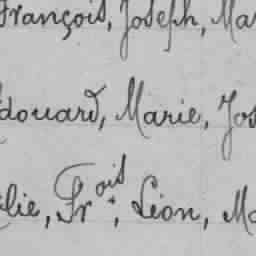 François, Joseph, Ma
douard, Marie, Jos
lie, Fr.ois, Léon, Ma